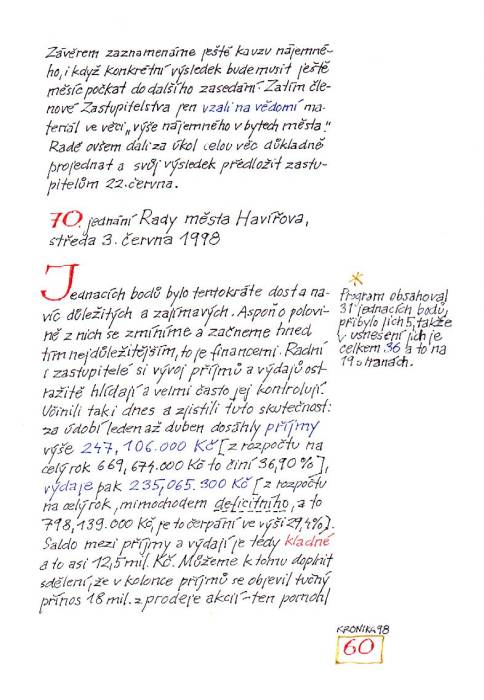 Závěrem zaznamenáme ještě kauzu nájemné-
ho, i když konkrétní výsledek bude musit ještě
měsíc počkat do dalšího zasedání. Zatím čle-
nové Zastupitelstva jen vzali na vědomí ma-
teriál ve věci „výše nájemného v bytech města."
Radě ovšem dali za úkol celou věc důkladně
projednat a svůj výsledek předložit zastu-
pitelům 22. června.
70. jednání Rady města Havířova,
středa 3. června 1998
Jednacích bodů bylo tentokráte dost a na-
víc důležitých a zajímavých. Aspoň o polovi-
ně z nich se zmíníme a začneme hned
tím nejdůležitějším, to je financemi. Radní
i zastupitelé si vývoj příjmů a výdajů ost-
ražitě hlídají a velmi často jej kontrolují.
Učinili tak i dnes a zjistili tuto skutečnost:
za údobí leden až duben dosáhly příjmy
výše 247,106.000 Kč [z rozpočtu na
celý rok 669,674.000 Kč to činí 36,90%],
výdaje pak 235,065.300 Kč [z rozpočtu
na celý rok, mimochodem deficitního, a to
798,139.000 Kč, je to čerpání ve výši 29,4%].
Saldo mezi příjmy a výdaji je tedy kladné
a to asi 12,5 mil. Kč. Můžeme k tomu doplnit
sdělení, že v kolonce příjmů se objevil tučný
přínos 18 mil. z prodeje akcií – ten pomohl
*
Program obsahoval
31 jednacích bodů,
přibylo jich 5, takže
v usnesení jich je
celkem 36 a to na
19 stranách.
KRONIKA 98
60